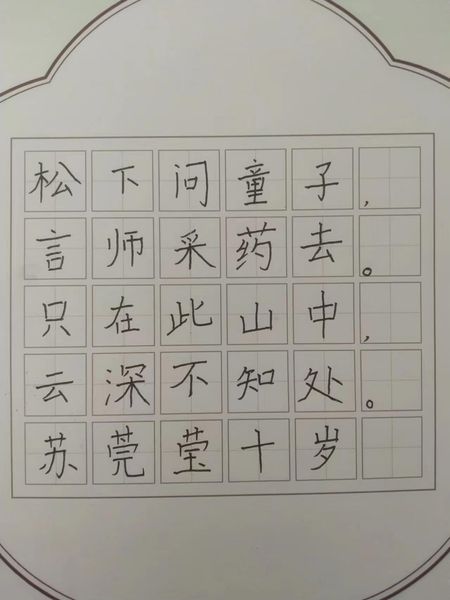 松下问童子，
言师采药去。
只在此山中，
云深不知处。
苏莞莹十岁